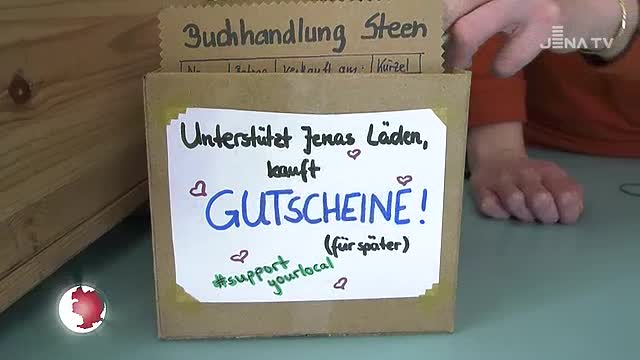 JENA TV
Buchhandlung Steen
Nr. Betrag verkauft am: Kürzel
Unterstützt Jenas Läden,
kauft
GUTSCHEINE!
(für später)
#support
yourlocal